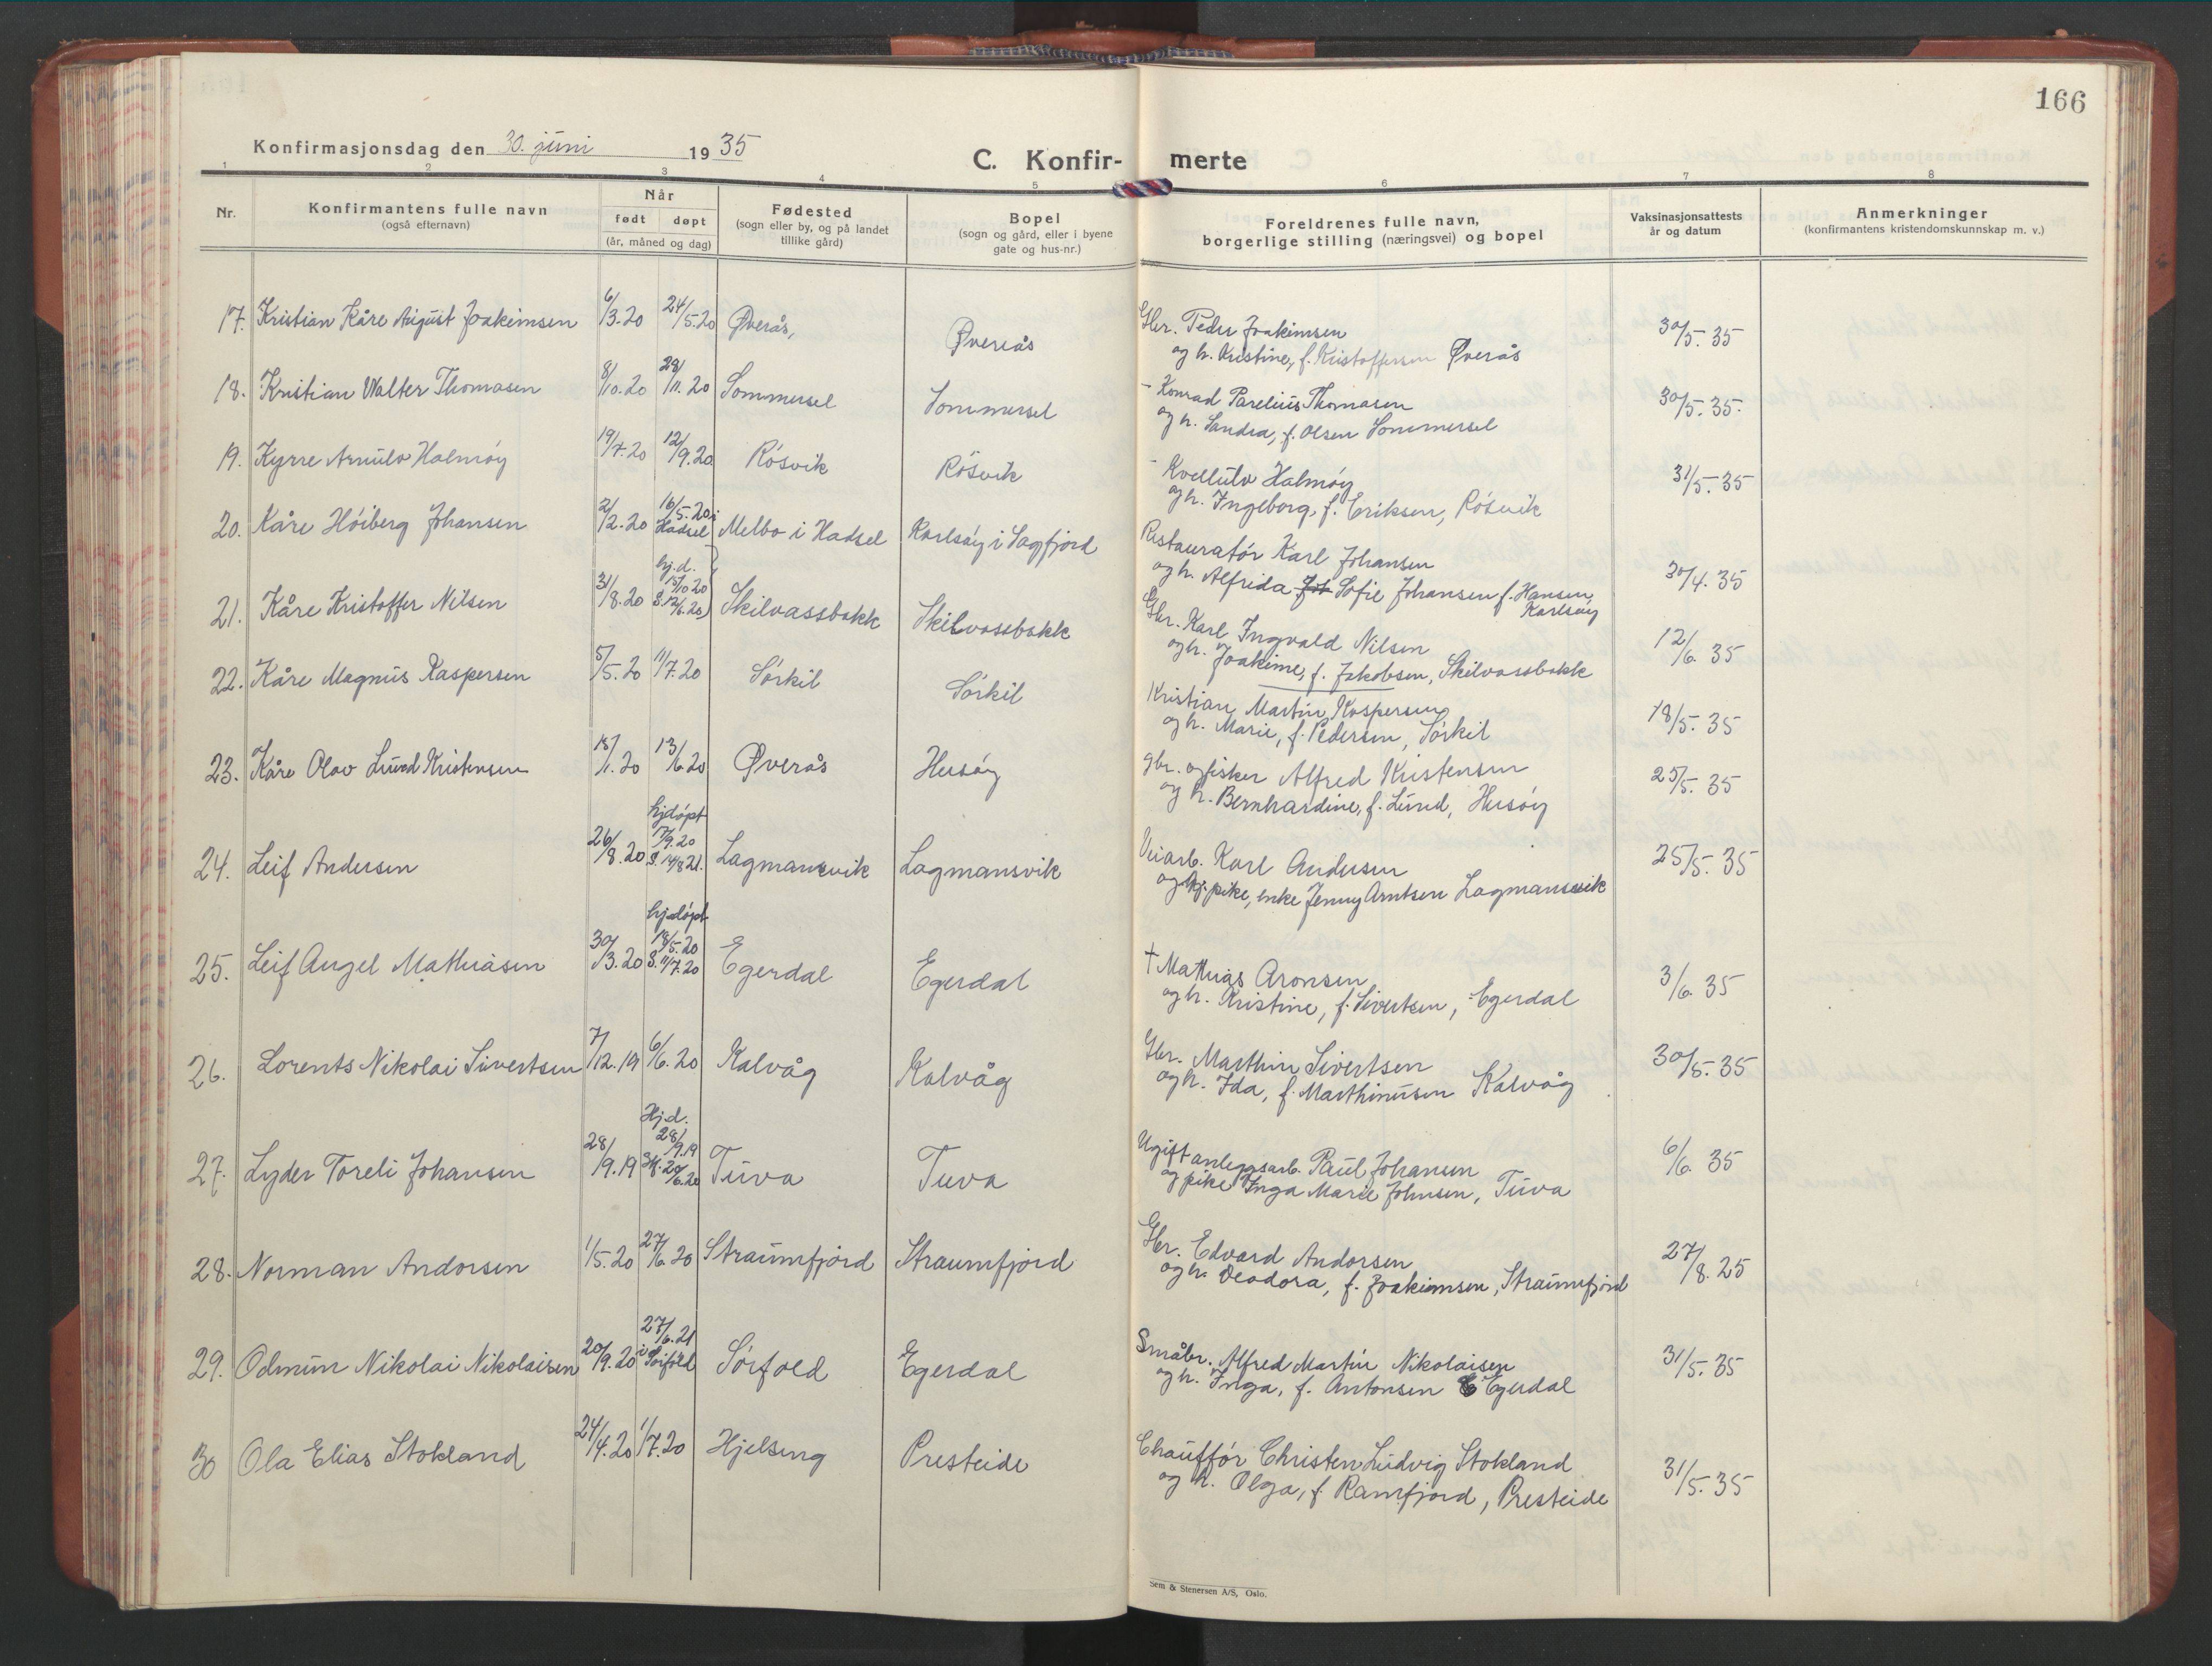 166
Konfirmasjonsdag den 30. juni 1935
C. Konfir- merte
1 2 3 4 5 6 7 8
Nr.
Konfirmantens fulle navn
(også efternavn)
Når
født døpt
(år, måned og dag)
Fødested
(sogn eller by, og på landet
tillike gård)
Bopel
(sogn og gård, eller i byene
gate og hus-nr.)
Foreldrenes fulle navn,
borgerlige stilling (næringsvei) og bopel
Vaksinasjonsattests
år og datum
Anmerkninger
(konfirmantens kristendomskunnskap m. v.)
17. Kristian Kåre August Joakimsen 6/3.20 24/5.20 Øverås, Øverås
Gbr. Peder Joakimsen 30/5.35
og h. Kristine, f. Kristoffersen Øverås
18. Kristian Walter Thomasen 8/10.20 28/11.20 Sommersel Sommersel
- Konrad Parelius Thomasen 30/5.35.
og h. Sandra, f. Olsen Sommersel
19. Kyrre Arnulv Halmøy 19/7.20 12/9.20 Røsvik Røsvik
- Kvellulv Halmøy 31/5.35
og h. Ingeborg, f. Eriksen, Røsvik
20. Kåre Høiberg Johansen 2/2.20 16/5.20 i Hadsel Melbo i Hadsel Karlsøy i Sagfjord
Restauratør Karl Johansen 30/4.35
og h. Alfrida Sofie Johansen f. Hansen,
Karlsøy
21. Kåre Kristoffer Nilsen 31/8.20 hj.d. 15/10 20 Skilvassbakk Skilvassbakk
Gbr. Karl Ingvald Nilsen 12/6.35
og h. Joakime, f. Jakobsen, Skilvassbakk
22. Kåre Magnus Kaspersen 5/5.20 11/7.20 Sørkil Sørkil
Kristian Martin Kaspersen 18/5.35
og h. Marie, f. Pedersen, Sørkil
23. Kåre Olav Lund Kristensen 18/1.20 13/6.20 Øverås Husøy
gbr. og fisker Alfred Kristensen 25/5.35
og h. Bernhardine, f. Lund, Husøy
24. Leif Andersen 26/8.20 hjdøpt 17/9.20 S. 14/8 21. Lagmansvik Lagmansvik
Veiarb. Karl Andersen 25/5.35
og pike, enke Jenny Arntsen Lagmansvik
25. Leif Angel Mathiasen 30/3.20 hjdøpt 18/5.20 S. 11/7.20 Egerdal Egerdal
† Mathias Aronsen 3/6.35
og h. Kristine, f. Sivertsen, Egerdal
26. Lorents Nikolai Sivertsen 7/12.19 6/6.20 Kalvåg Kalvåg
Gbr. Marthin Sivertsen 30/5.35
og h. Ida, f. Marthinusen Kalvåg
27. Lyder Toreli Johansen 28/9.19 Hj.d. 28/9.19 St. 20/6.20 Tuva Tuva
Ugift anleggsarb. Paul Johansen 6/6.35
og pike Inga Marie Johnsen, Tuva
28. Norman Andorsen 1/5.20 27/6.20 Straumfjord Straumfjord
Gbr. Edvard Andorsen 27/8.25
og h. Deodora, f. Joakimsen, Straumfjord
29. Odmun Nikolai Nikolaisen 20/9.20 27/6.21 i Sørfold Sørfold Egerdal
Småbr. Alfred Martin Nikolaisen 31/5.35
og h. Inga, f. Antonsen Egerdal
30 Ola Elias Stokland 24/4.20 1/7.20 Hjelseng Presteide
Chauffør Christen Ludvig Stokland 31/5.35
og h. Olga, f. Ramfjord, Presteide
Sem & Stenersen A/S, Oslo.